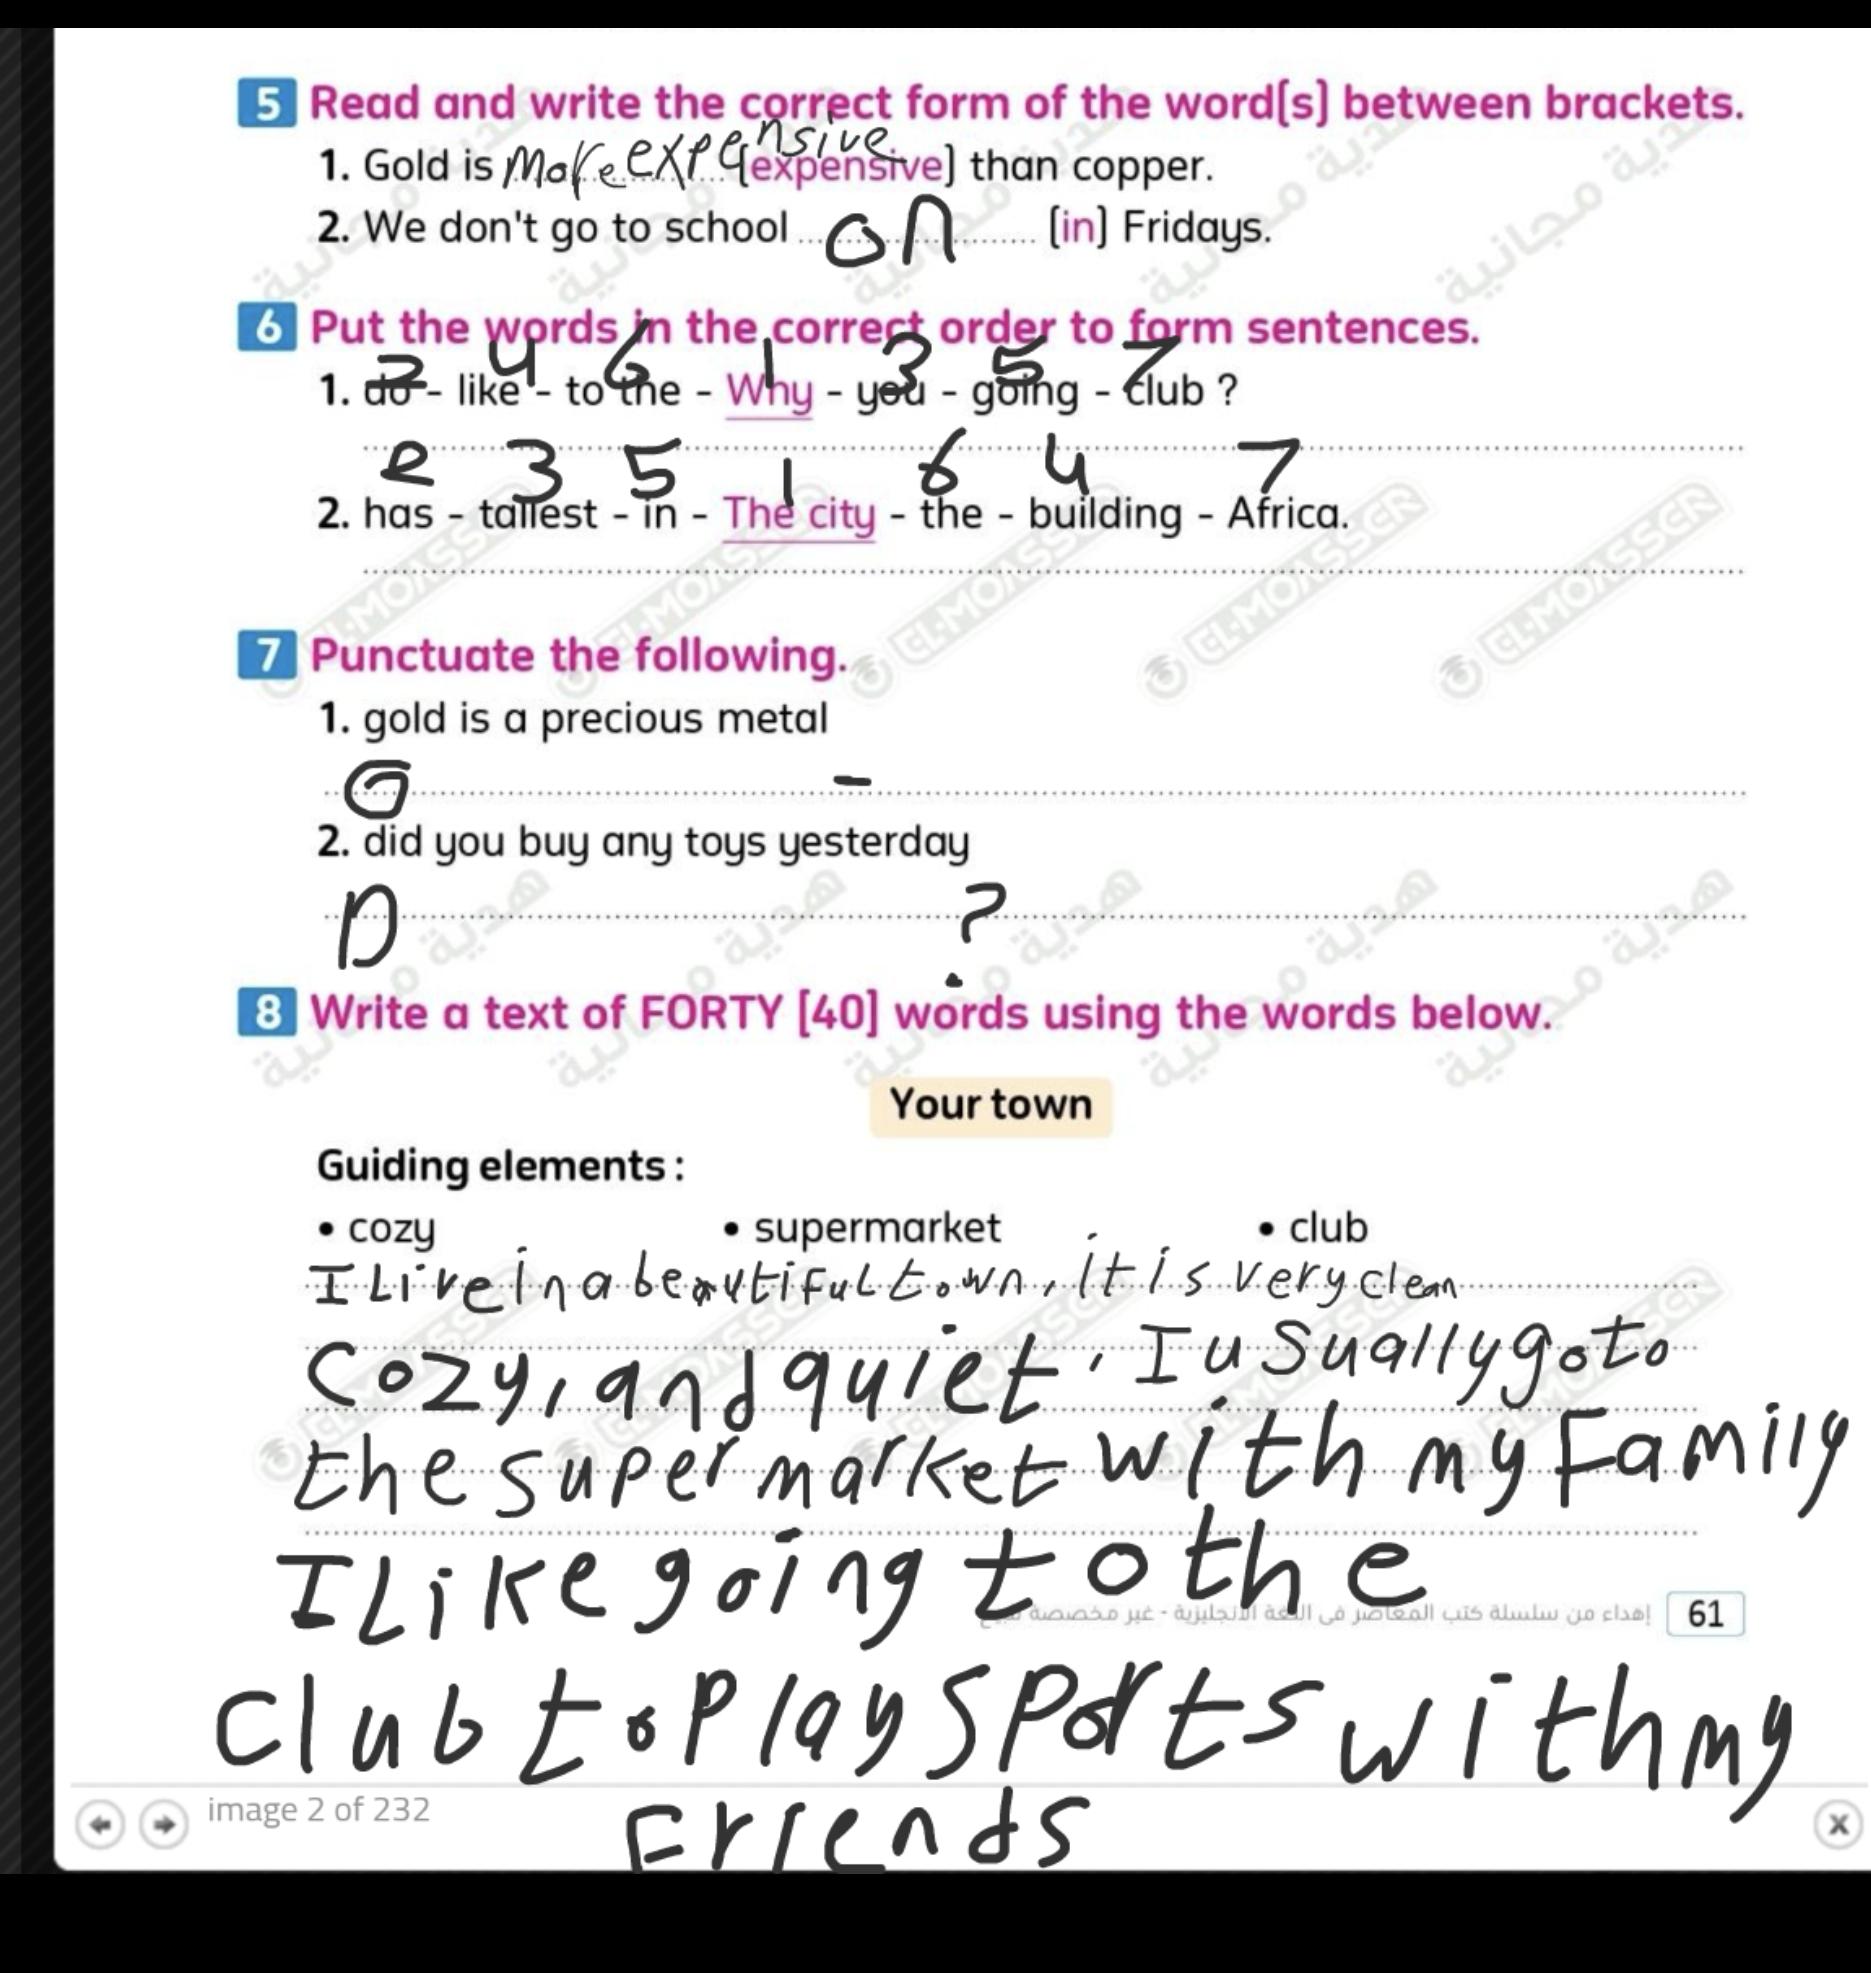 5 Read and write the correct form of the word(s) between brackets.
1. Gold is more expensive (expensive) than copper.
2. We don't go to school on (in) Fridays.
6 Put the words in the correct order to form sentences.
2 4 6 1 3 5 7
1. do - like - to the - Why - you - going - club ?
2 3 5 1 6 4 7
2. has - tallest - in - The city - the - building - Africa.
7 Punctuate the following.
1. gold is a precious metal
G -
2. did you buy any toys yesterday
D ?
8 Write a text of FORTY (40) words using the words below.
Your town
Guiding elements :
• cozy • supermarket • club
I Live in a beautiful town, it is very clean
Cozy, and quiet, I usually go to
the supermarket with my Family
I Like going to the
إهداء من سلسلة كتب المعاصر فى اللغة الانجليزية - غير مخصصة 61
club to play sports with my
image 2 of 232 X
Friends
هدية مجانية
EL-MOASSER